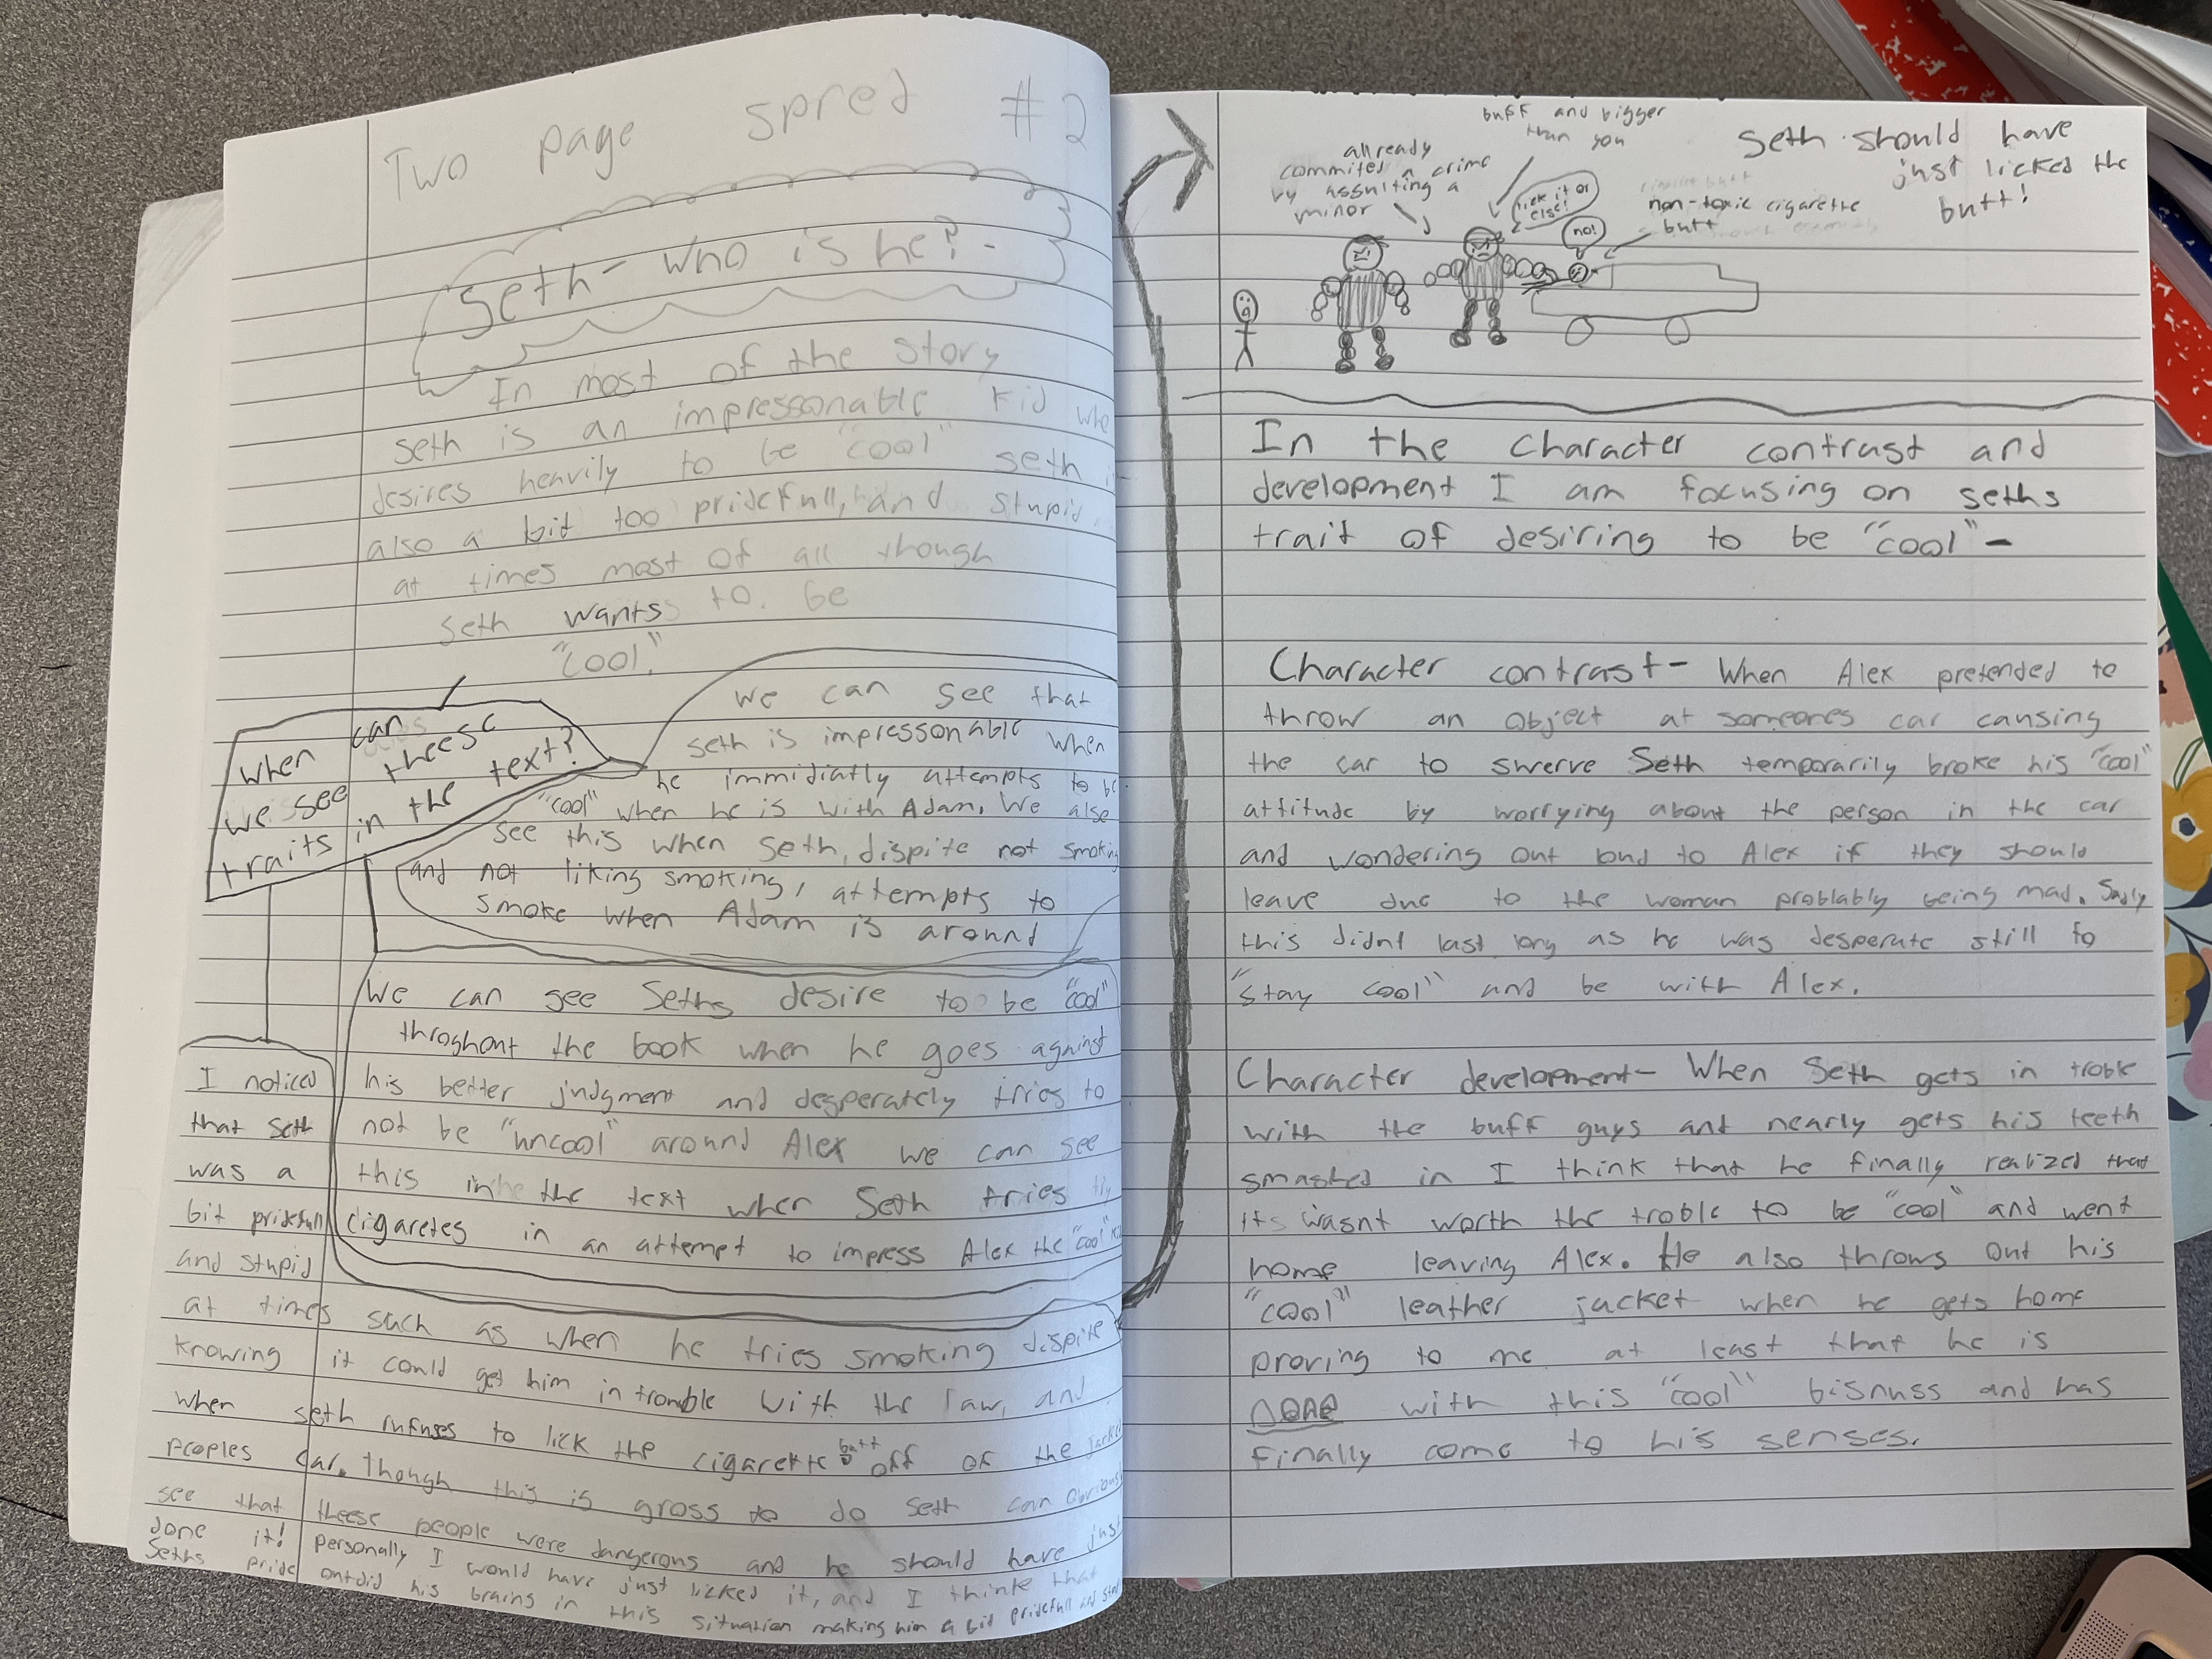 Two page spred #2
Seth- who is he?-
In most of the story
seth is an impressonable kid who
desires heavily to be "cool" seth
also a bit too pridefull, and stupid
at times most of all though
Seth wants to be
"cool."
when can
we see theese
traits in the text?
we can see that
seth is impressonable when
he immidiatly attempts to be
"cool" when he is with Adam. We also
see this when Seth, dispite not smoking
and not liking smoking, attempts to
smoke when Adam is around
We can see Seths desire to be "cool"
throghout the book when he goes against
his better judgment and desperately tries to
not be "uncool" around Alex we can see
this in the text when Seth tries
cigaretes in an attempt to impress Alex the "cool"
I noticed
that Seth
was a
bit pridefull
and stupid
at times such as when he tries smoking dispite
knowing it could get him in trouble with the law, and
when seth rufuses to lick the cigarette butt off of the
Peoples car. though this is gross to do Seth can
see that theese people were dangerous and he should have just
done it! personally I would have just licked it, and I think that
Seths pride outdid his brains in this situation making him a bit pridefull and
allready
commited a crime
by assulting a
minor
buff and bigger
than you
lick it or
else!
no!
non-toxic cigarette
butt
Seth should have
just licked the
butt!
In the character contrast and
development I am focusing on seths
trait of desiring to be "cool"-
Character contrast- When Alex pretended to
throw an object at someones car causing
the car to swerve Seth temporarily broke his "cool"
attitude by worrying about the person in the car
and wondering out loud to Alex if they should
leave due to the woman problably being mad. Sadly
this didnt last long as he was desperate still to
"stay cool" and be with Alex.
Character development- When Seth gets in troble
with the buff guys and nearly gets his teeth
smashed in I think that he finally realized that
its wasnt worth the troble to be "cool" and went
home leaving Alex. He also throws out his
"cool" leather jacket when he gets home
proving to me at least that he is
DONE with this "cool" bisnuss and has
finally come to his senses.